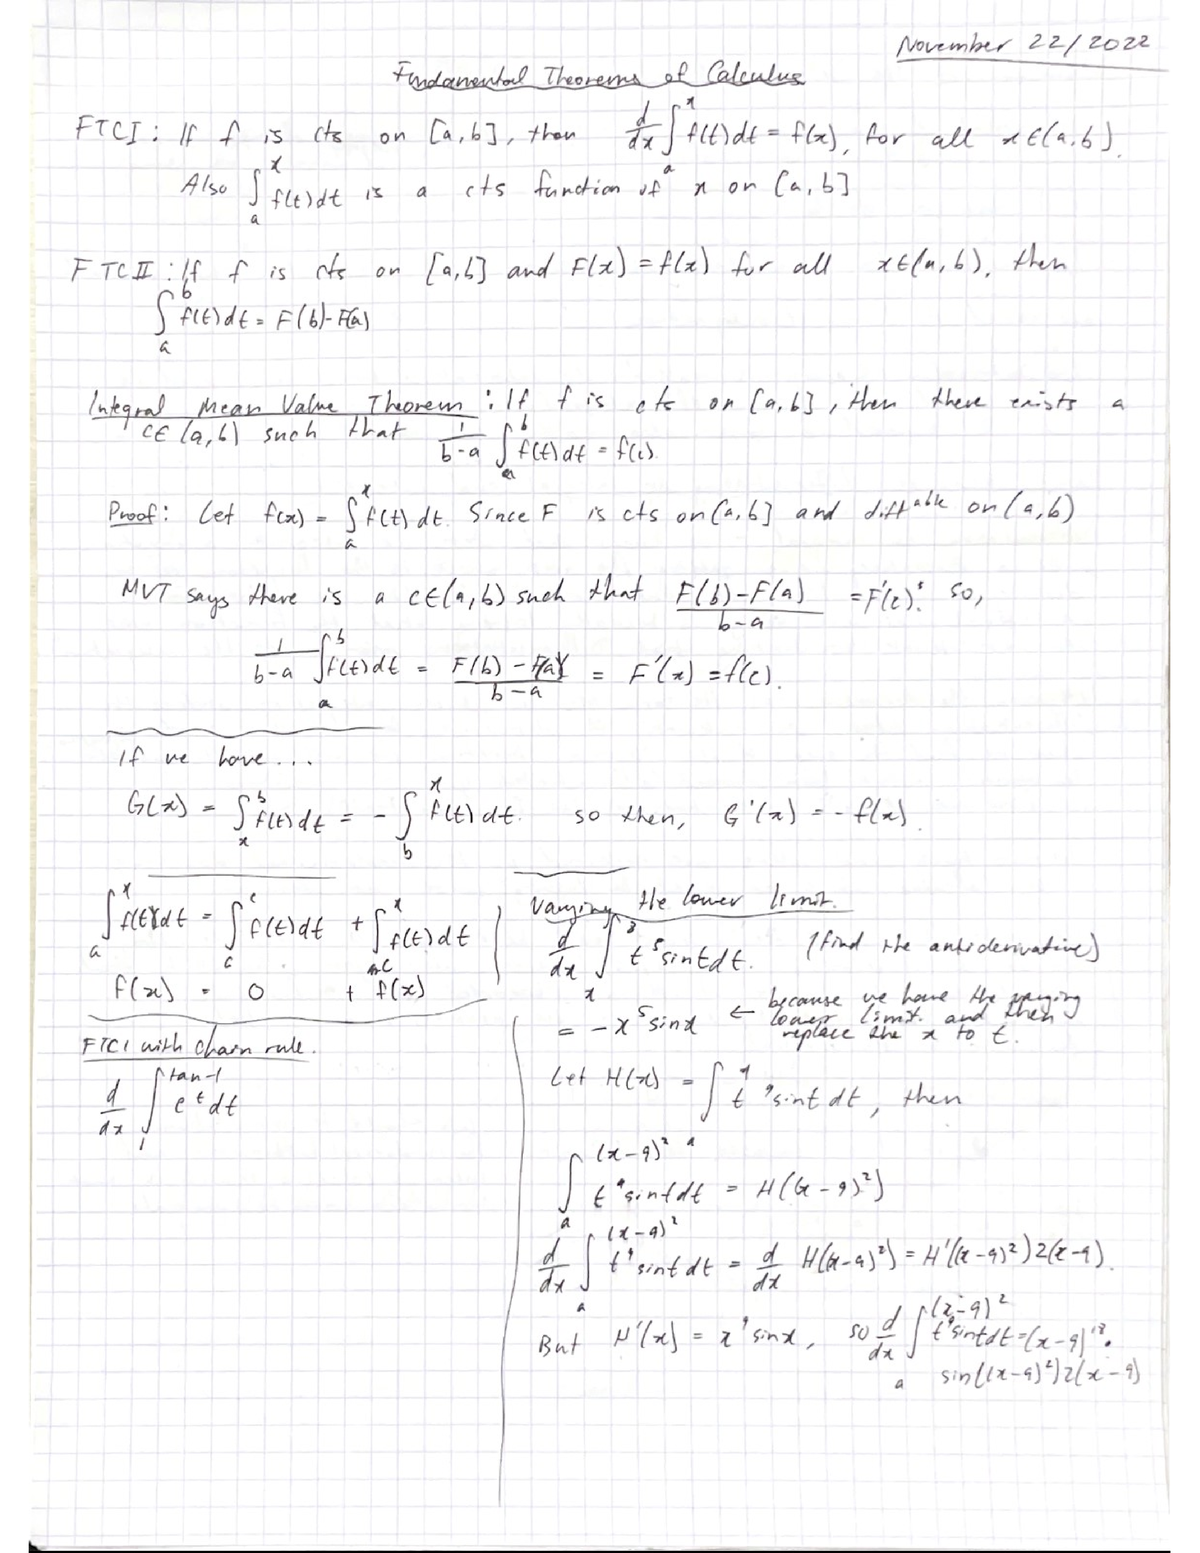 November 22/2022
Fundamental Theorems of Calculus
FTCI: If f is cts on [a,b], then d/dx ∫_a^x f(t)dt = f(x), for all x∈(a,b).
Also ∫_a^x f(t)dt is a cts function of x on [a,b]
FTCII: If f is cts on [a,b] and F(x) = f(x) for all x∈(a,b), then
∫_a^b f(t)dt = F(b)-F(a)
Integral Mean Value Theorem: If f is cts on [a,b], then there exists a
c∈(a,b) such that 1/(b-a) ∫_a^b f(t)dt = f(c).
Proof: Let f(x) = ∫_a^x f(t)dt. Since F is cts on [a,b] and diffable on (a,b)
MVT says there is a c∈(a,b) such that (F(b)-F(a))/(b-a) = F'(c). So,
1/(b-a) ∫_a^b f(t)dt = (F(b)-F(a))/(b-a) = F'(x) = f(c).
If we have...
G(x) = ∫_x^b f(t)dt = -∫_b^x f(t)dt. so then, G'(x) = -f(x).
∫_a^x f(t)dt = ∫_c^c f(t)dt + ∫_c^x f(t)dt
f(x) = 0 + f(x)
FTC1 with chain rule.
d/dx ∫_1^{tan-1} e^t dt
Varying the lower limit.
d/dx ∫_x^3 t^5 sint dt. (find the antiderivative)
= -x^5 sinx ← because we have the varying
lower limit. and then
replace the x to t.
Let H(x) = ∫_a^x t^9 sint dt, then
∫_a^{(x-9)^2} t^9 sint dt = H((x-9)^2)
d/dx ∫_a^{(x-9)^2} t^9 sint dt = d/dx H((x-9)^2) = H'((x-9)^2)2(x-9).
But H'(x) = x^9 sinx, so d/dx ∫_a^{(x-9)^2} t^9 sint dt = (x-9)^18 ·
sin((x-9)^2)2(x-9)